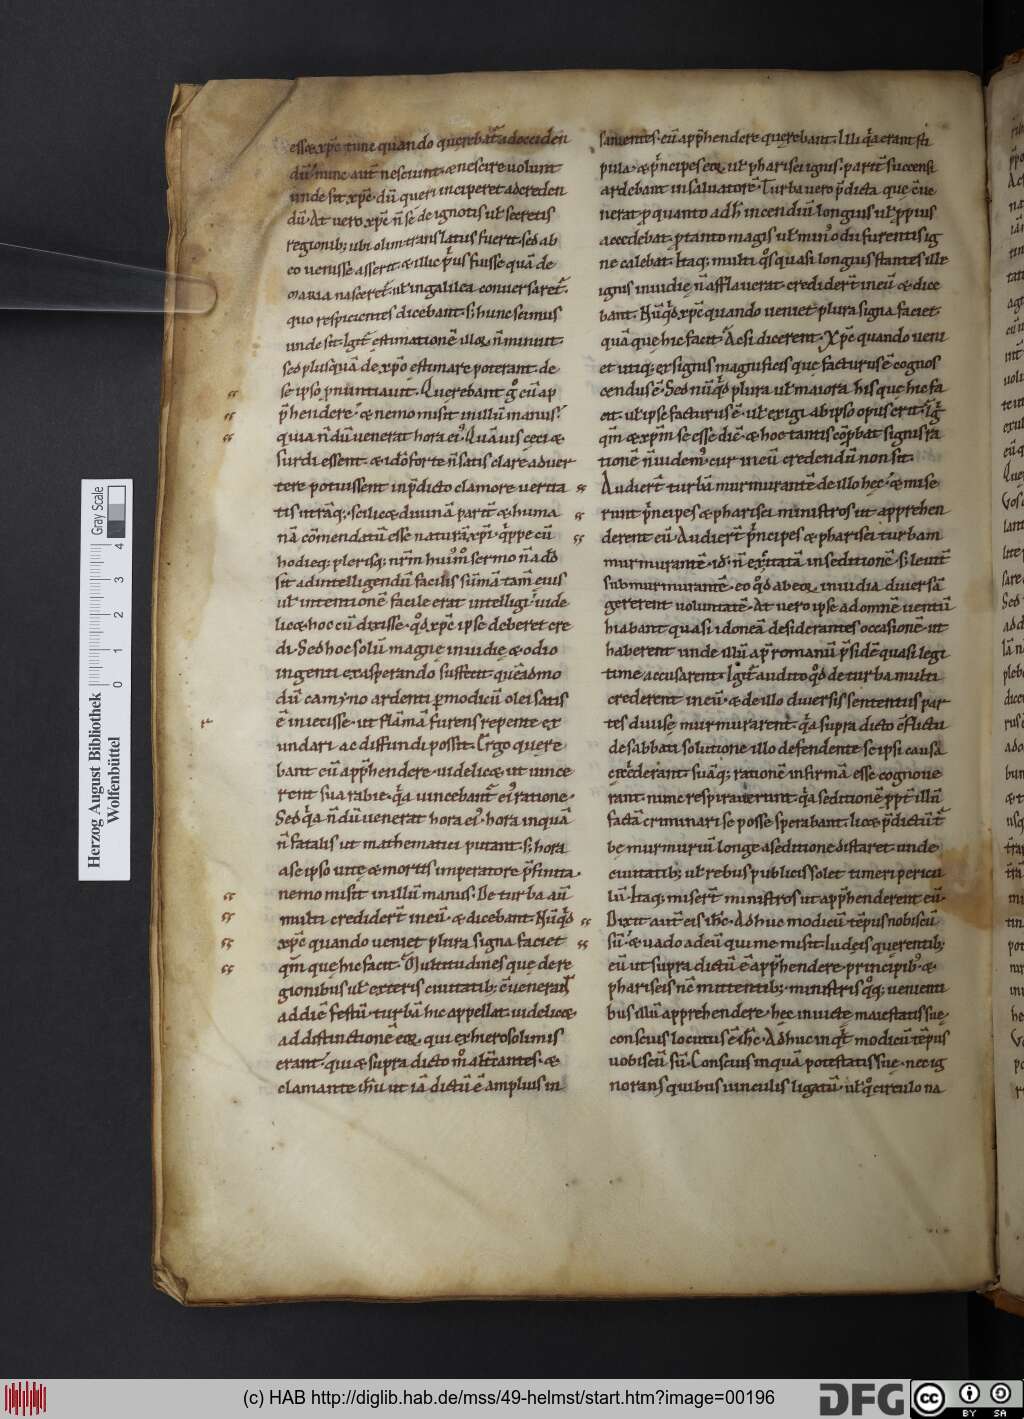 esset xp̄c tunc quando querebat᷑ adoceiden
dū. nunc aut̄ nesciunt. & nescire uolunt
unde sit xp̄c. dū queri inciperet adcreden
dū. At uero xp̄c n̄ se de ignotis uƚ secretis
regionib; ubi olim translatus fuerit. sed ab
eo uenisse asserit. & illic p̄us fuisse quā de
MARIA nasceret᷑. uƚ in galilea conuersaret᷑.
quo respicientes dicebant. S; hunc scimus
unde sit. Igit᷑ estimationē illoꝝ n̄ minuit.
sed plusquā de xp̄o estimare poterant. de
se ipso p̄nuntiauit. Querebant g° eū ap
p̄hendere. & nemo misit in illū manus.
quia n̄dū venerat hora ei᷒. Quāuis ceci &
surdi essent. & idō forte n̄ satis clare aduer
tere potuissent in p̄dicto clamore uerita
tis utrāq;. scilic& diuinā partē & huma
nā cōmendatū esse naturā xp̄i. q̄ppe cū
hodieq; plerisq; nr̄m huiᵒmͦ sermo n̄ adō
sit ad intelligendū facilis. sūmā tam̄ eius
uƚ intentionē facile erat intelligi. uide
lic& hoc eū dixisse. qͦd xp̄c ipse deberet cre
di. Sed hoc solū magne inuidię & odio
ingenti exasperando suffecit. quēadmo
dū camyno ardenti ꝑmodicū olei satis
ē iniecisse. ut flāmā furens repente ex
undari ac diffundi possit. Ergo quere
bant eū app̄hendere. uidelic& ut uince
rent sua rabie. q̄a uincebant᷑ ei᷒ ratione.
Sed q̄a n̄dū uenerat hora ei᷒. hora inquā
n̄ fatalis ut mathematici putant. s; hora
a se ipso uitę & mortis imperatore p̄finita.
nemo misit in illū manus. De turba aū
multi crediderī in eū. & dicebant. Nūq̄d
xp̄c quando ueniet plura signa faciet
qm̄ que hic facit. Multitudines que de re
gionibus uƚ exteris ciuitatib; c̄uenerañ
ad diē festū. turbā hic appellat. uidelic&
ad distinctionē eoꝝ. qui ex hierosolimis
erant. qui & supra dicto mͦ altc̄antes. &
clamante ih̄u ut iā dictū ē amplius in
sanientes. eū app̄hendere querebant. Illi q̄a erant sti
pula. & p̄ncipes eoꝝ uƚ pharisei ignis. parit᷑ succensi
ardebant in saluatorē. Turba uero p̄dicta que c̄ue
nerat. ꝓ quanto adh̄ incendiū longius uƚ p̄pius
accedebat. ꝓ tanto magis uƚ min᷒ odii furentis ig
ne calebat. Itaq; multi qͦs quasi longius stantes ille
ignis inuidię n̄ afflauerat. credider̄ in eū & dice
bant. Nūq̄d xp̄c quando ueniet plura signa faciet
quā que hic facit. Ac si dicerent. Xp̄c quando ueni
et utiq; ex signis magnificis que facturus ē cognos
cendus ē. Sed nūq̄d plura uƚ maiora his que hic fa
cit. uƚ ipse facturus ē. uƚ exigi ab ipso opus erit. Igit᷑
qm̄ & xp̄m se esse dic̄. & hoc tantis cōp̄bat signis ra
tionē n̄ uidem᷒. cur in eū credendū non sit.
Audier̄ turbā murmurantē de illo hęc. & mise
runt p̄ncipes & pharisei ministros ut apprehen
derent eū. Audier̄ p̄ncipes & pharisei turbam
murmurantē. id. n̄ excitatā in seditionē s; leuit᷑
submurmurantē. eo qͦd ab eoꝝ inuidia diuersā
gererent uoluntatē. At uero ipse ad omnē uentū
hiabant quasi idoneā desiderantes occasionē. ut
haberent unde illū ap̄ romanū p̄sidē quasi legi
time accusarent. Igit᷑ audito qͦd de turba multi
crederent in eū. & de illo diuersis sententiis par
tes diuisę murmurarent. q̄a supra dicto c̄flictu
de sabbati solutione illo defendente se ipsi causā
ceciderant. suāq; rationē infirmā esse cognoue
rant. nunc respirauerunt. q̄a seditionē ppt̄ illū
factā criminari se posse sperabant. lic& p̄dictū t᷑
bę murmuriū longe a seditione distaret. unde
ciuitatib; uƚ rebus publicis solet timeri pericu
lū. Itaq; miser̄ ministros ut app̄henderent eū.
Dixit aut̄ eis ih̄c. Adhuc modicū tēpus uobiscū
sū. & uado ad eū qui me misit. Iudeis querentib;
eū ut supra dictū ē app̄hendere. principib᷒ &
phariseis nc̄ mittentib;. ministris qͦq; uenienti
bus illū apprehendere. hęc inuictę maiestatis suę
conscius locutus ē ih̄c. Adhuc inq̄t modicū tēpus
uobiscū sū. Conscius inquā potestatis suę. nec ig
norans quibus uinculis ligatū. uƚ qͦ circulo na
Herzog August Bibliothek
Wolfenbüttel
0 1 2 3 4
Gray Scale
(c) HAB http://diglib.hab.de/mss/49-helmst/start.htm?image=00196
DFG
cc BY SA